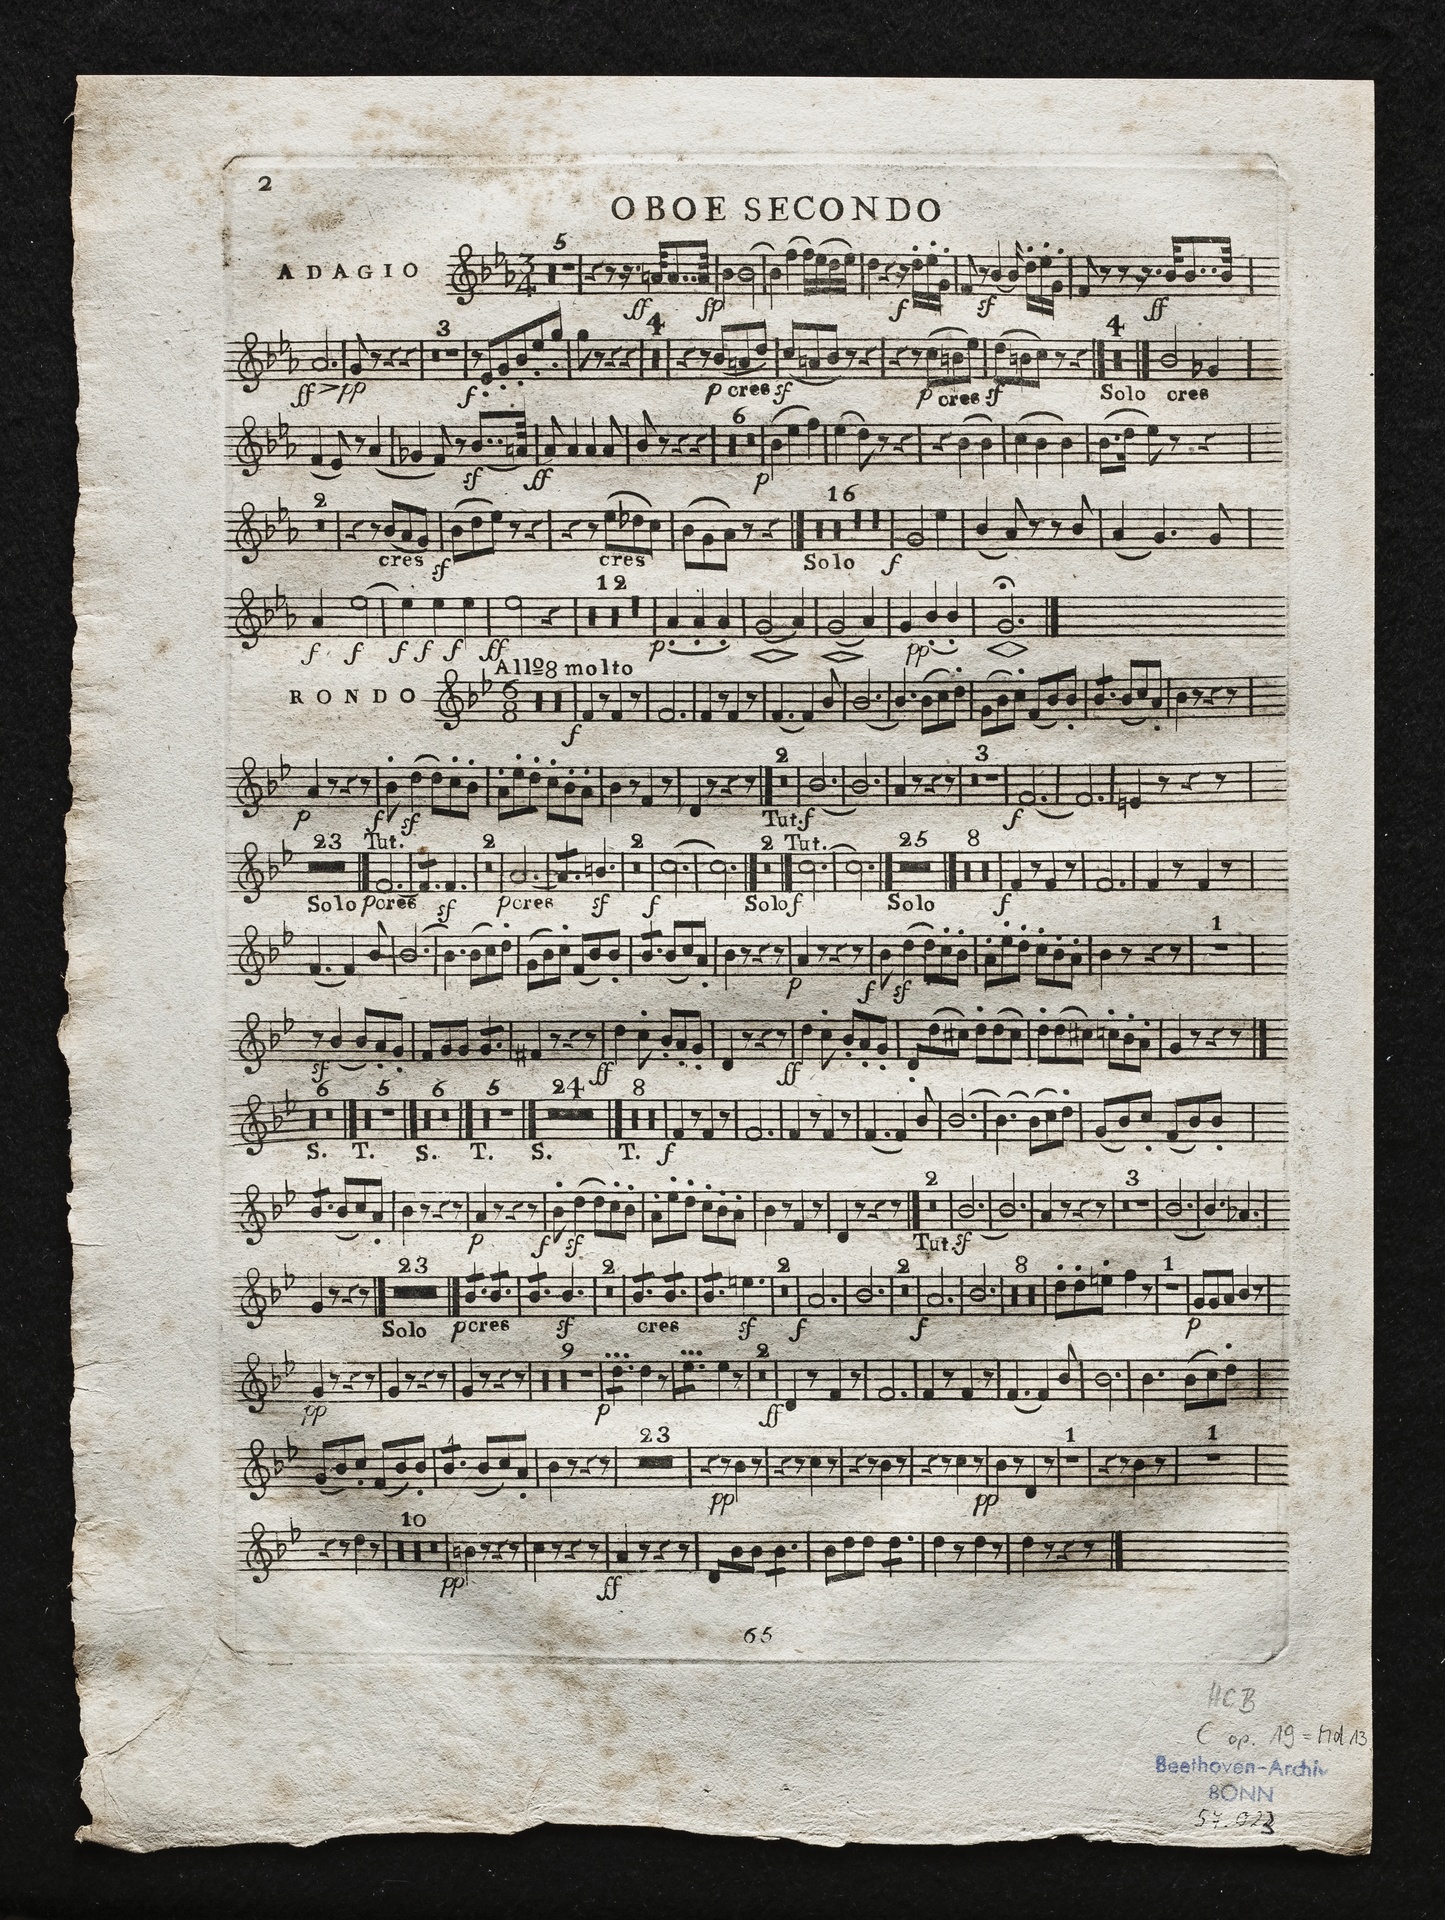 2
OBOE SECONDO
5
ADAGIO
ff fp f sf ff
3 4 4
ff pp f p cres sf p cres sf Solo cres
6
sf ff p
2 16
cres sf cres Solo f
12
f f f f f ff p pp
Allº 8 molto
RONDO
f
2 3
p f sf Tut. f f
23 Tut. 2 2 2 Tut. 25 8
Solo p cres sf p cres sf f Solo f Solo f
1
p f sf
sf ff ff
6 5 6 5 24 8
S. T. S. T. S. T. f
2 3
p f sf Tut. sf
23 2 2 2 8 1
Solo p cres sf cres sf f f p
9 2
pp p ff
23 1 1
pp pp
10
pp ff
65
HCB
C op. 19 = Md 13
Beethoven-Archiv
BONN